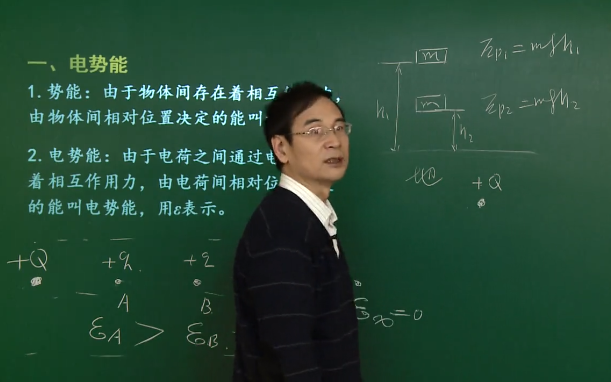 一、电势能
1.势能：由于物体间存在着相互
由物体间相对位置决定的能叫
2.电势能：由于电荷之间通过电
着相互作用力，由电荷间相对位
的能叫电势能，用ε表示。
m Ep1=mgh1
m Ep2=mgh2
h1
h2
地 +Q
+Q +q +q
A B
εA > εB
ε∞=0